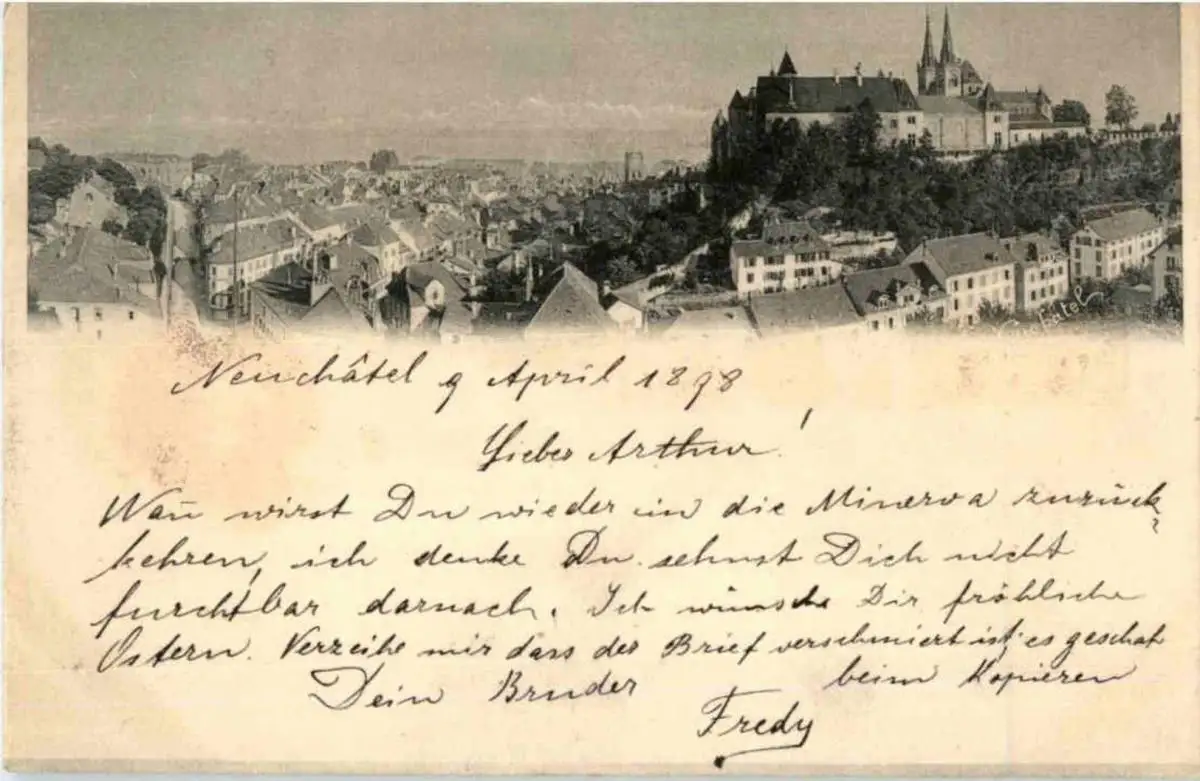 Neuchâtel
Neuchâtel 9 April 1898
Lieber Arthur!
Wañ wirst Du wieder in die Minerva zurück-
kehren, ich denke Du sehnst Dich nicht
furchtbar darnach. Ich wünsche Dir fröhliche
Ostern. Verzeihe mir dass der Brief verschmiert ist; es geschah
beim Kopieren
Dein Bruder
Fredy